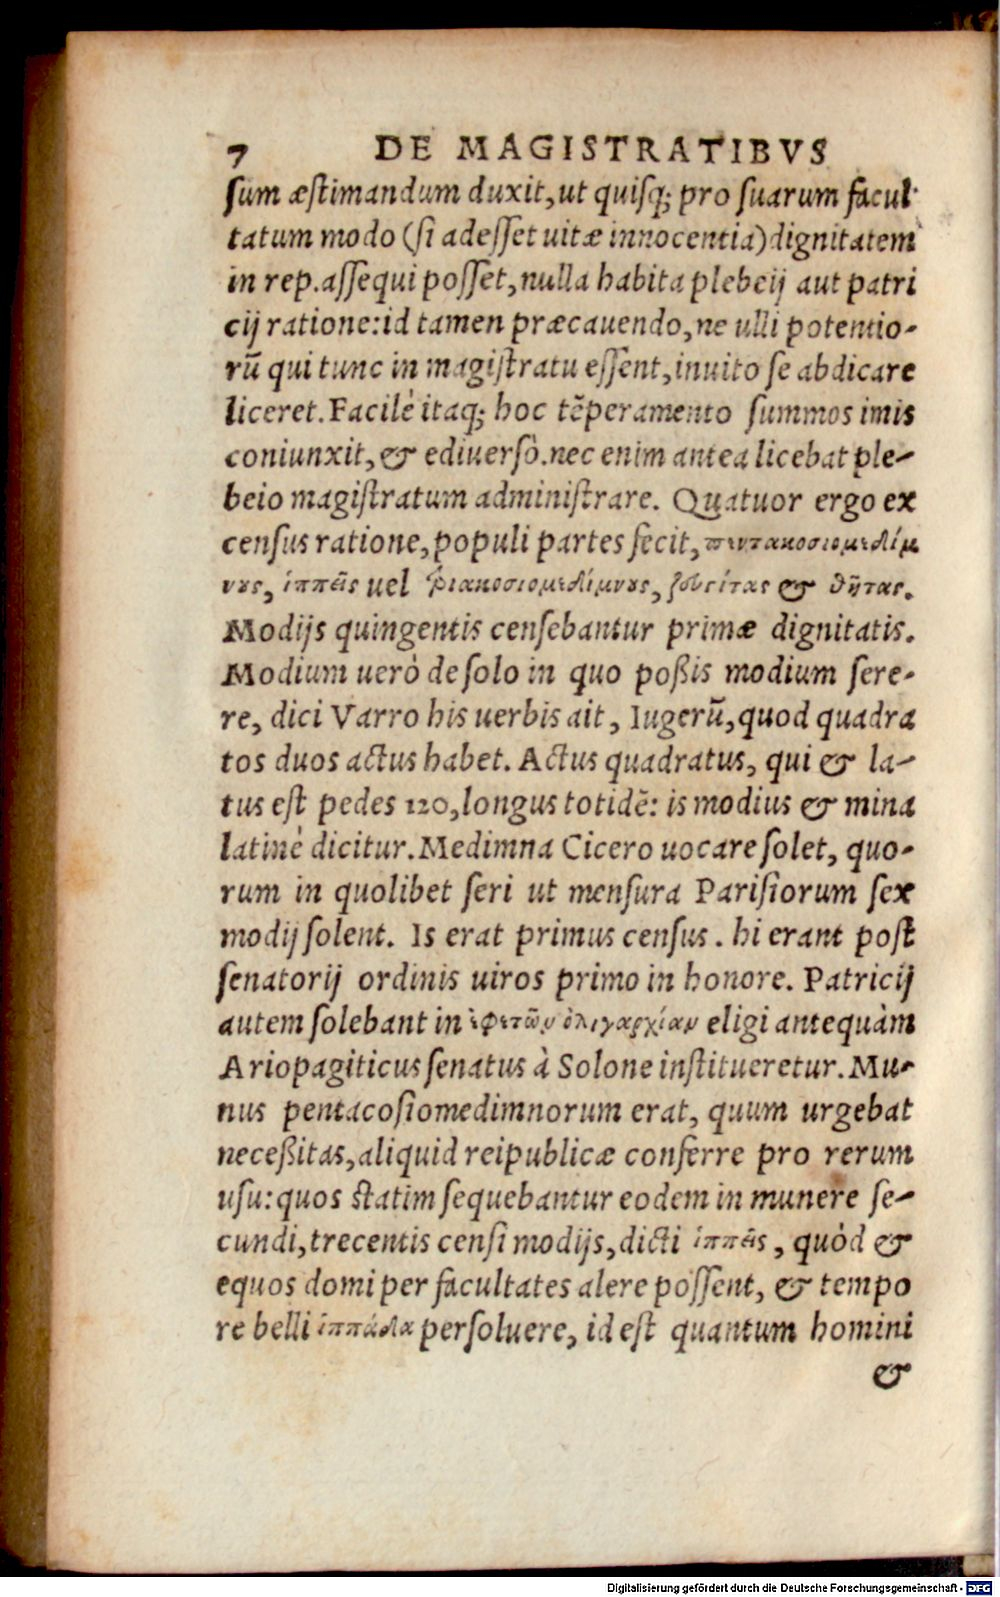 7 DE MAGISTRATIBVS
sum æstimandum duxit, ut quisq; pro suarum facul
tatum modo (si adesset uitæ innocentia) dignitatem
in rep. assequi posset, nulla habita plebeij aut patri
cij ratione: id tamen præcauendo, ne ulli potentio-
rũ qui tunc in magistratu essent, inuito se abdicare
liceret. Facilè itaq; hoc tẽperamento summos imis
coniunxit, & ediuersò. nec enim antea licebat ple-
beio magistratum administrare. Quatuor ergo ex
census ratione, populi partes fecit, πεντακοσιομεδίμ
νους, ἱππεῖς uel τριακοσιομεδίμνους, ζευγίτας & θῆτας.
Modijs quingentis censebantur primæ dignitatis.
Modium uerò de solo in quo poßis modium sere-
re, dici Varro his uerbis ait, Iugerũ, quod quadra
tos duos actus habet. Actus quadratus, qui & la-
tus est pedes 120, longus totidẽ: is modius & mina
latinè dicitur. Medimna Cicero uocare solet, quo-
rum in quolibet seri ut mensura Parisiorum sex
modij solent. Is erat primus census. hi erant post
senatorij ordinis uiros primo in honore. Patricij
autem solebant in ἐφετῶν ὀλιγαρχίαν eligi antequàm
Ariopagiticus senatus à Solone institueretur. Mu-
nus pentacosiomedimnorum erat, quum urgebat
neceßitas, aliquid reipublicæ conferre pro rerum
usu: quos statim sequebantur eodem in munere se-
cundi, trecentis censi modijs, dicti ἱππεῖς, quòd &
equos domi per facultates alere possent, & tempo
re belli ἱππάδα persoluere, id est quantum homini
&
Digitalisierung gefördert durch die Deutsche Forschungsgemeinschaft - DFG